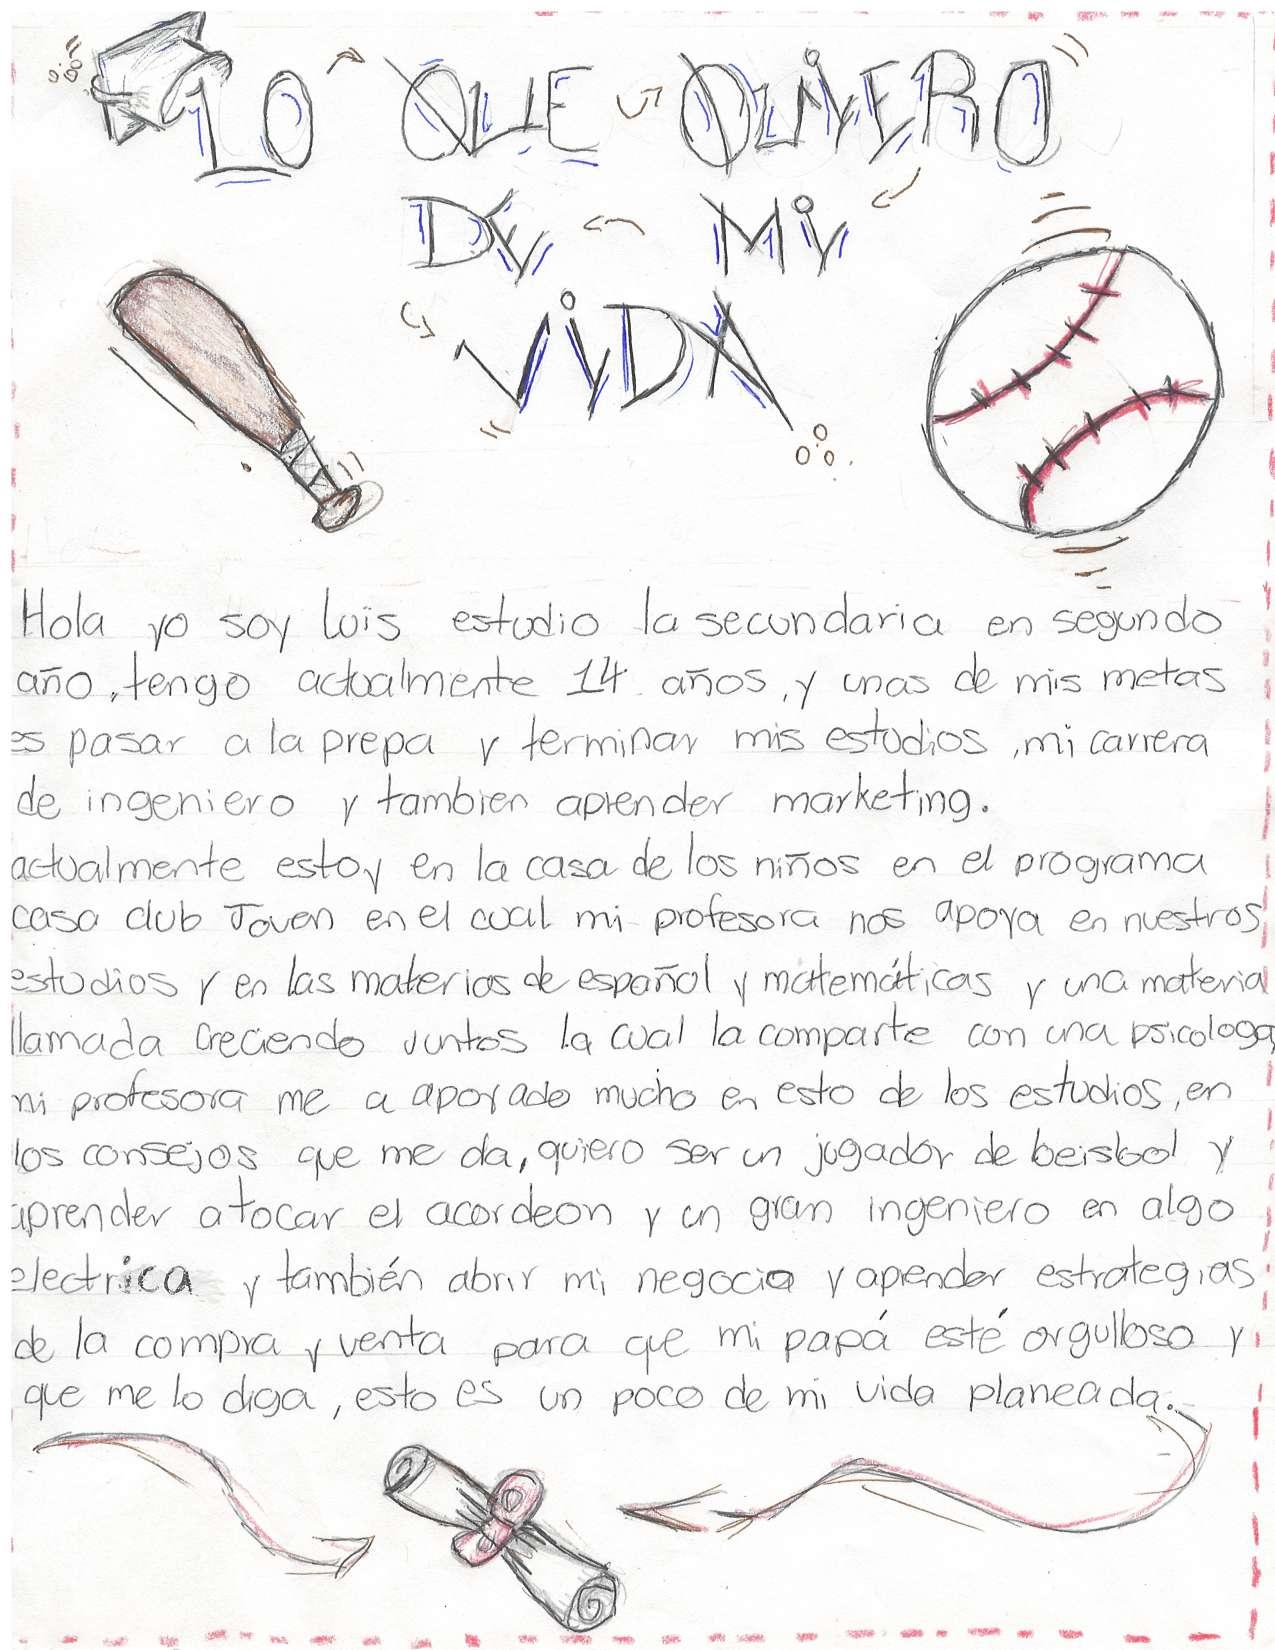 LO QUE QUIERO
DE MI
VIDA
Hola yo soy luis estudio la secundaria en segundo
año, tengo actualmente 14 años, y unas de mis metas
es pasar a la prepa y terminar mis estudios, mi carrera
de ingeniero y tambien aprender marketing.
actualmente estoy en la casa de los niños en el programa
casa club Joven en el cual mi profesora nos apoya en nuestros
estudios y en las materias de español y matemáticas y una materia
llamada Creciendo Juntos la cual la comparte con una psicologa,
mi profesora me a apoyado mucho en esto de los estudios, en
los consejos que me da, quiero ser un jugador de beisbol y
aprender a tocar el acordeon y un gran ingeniero en algo
electrica y también abrir mi negocio y aprender estrategias
de la compra y venta para que mi papá esté orgulloso y
que me lo diga, esto es un poco de mi vida planeada.